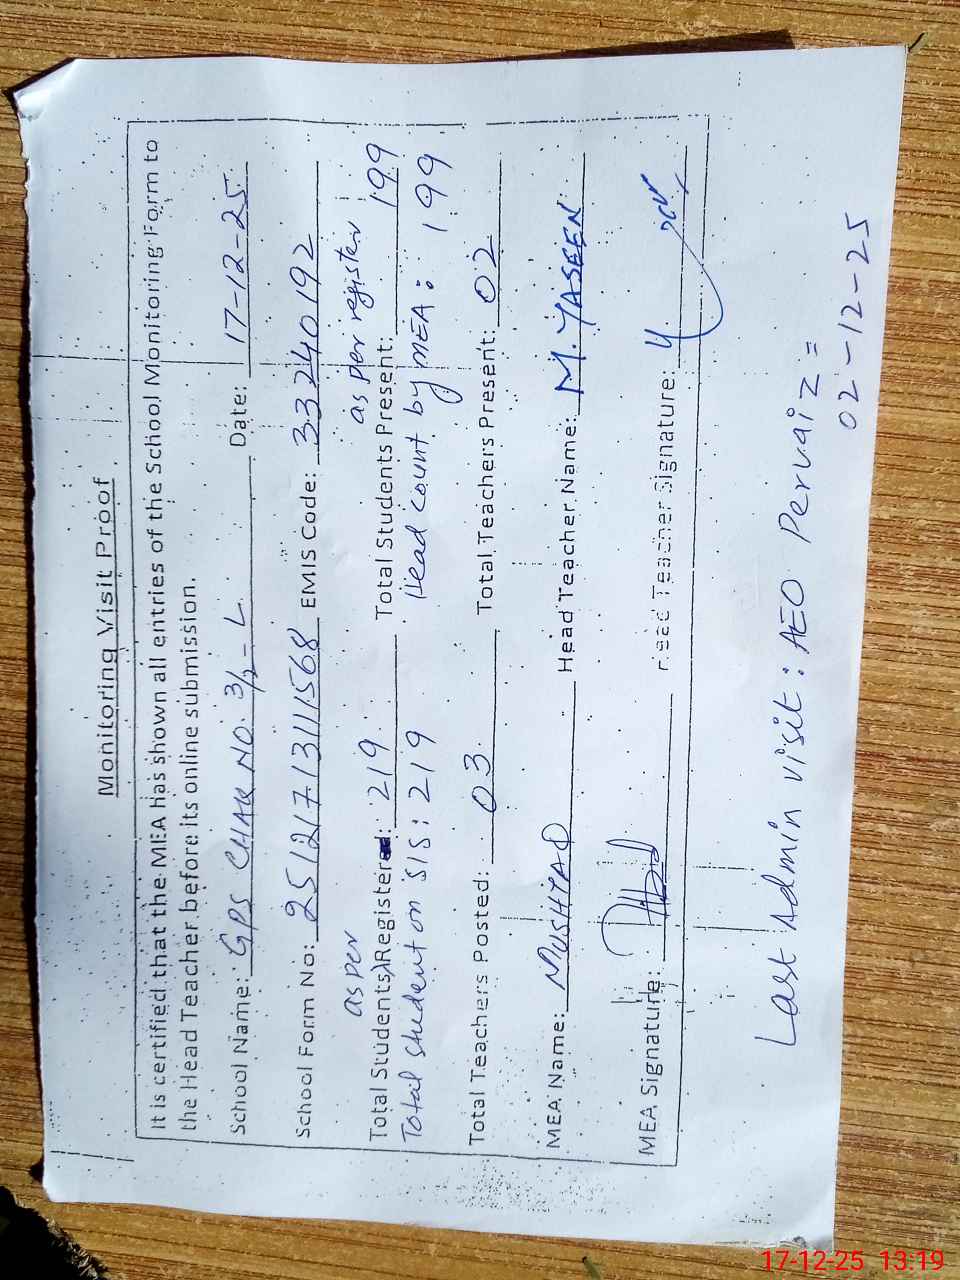 Monitoring Visit Proof
It is certified that the MEA has shown all entries of the School Monitoring Form to
the Head Teacher before its online submission.
School Name: GPS CHAK NO. 3/2-L Date: 17-12-25
School Form No: 2512171311568 EMIS Code: 33240192
as per as per register
Total Students Register: 219 Total Students Present: 199
Total student on SIS: 219 Head count by MEA: 199
Total Teachers Posted: 03 Total Teachers Present: 02
MEA Name: MUSHTAQ Head Teacher Name: M. YASEEN
MEA Signature: Head Teacher Signature:
Last Admin visit: AEO Pervaiz =
02-12-25
17-12-25 13:19